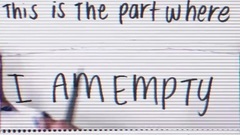 This is The part where
I AM EMPTY